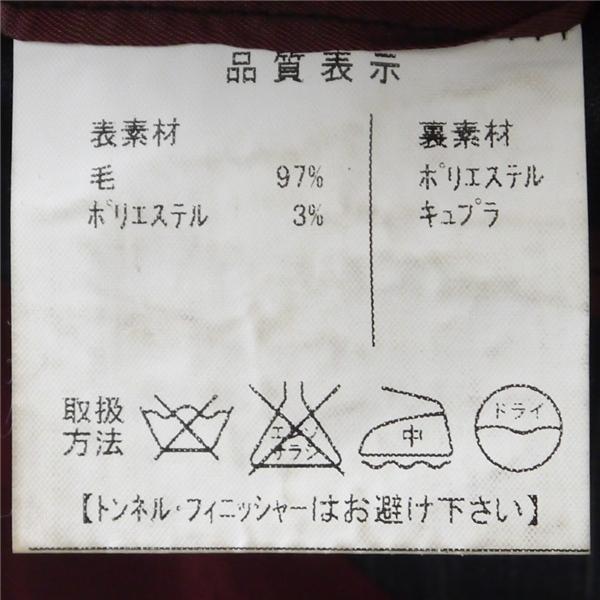 品質表示
表素材
毛 97%
ポリエステル 3%
裏素材
ポリエステル
キュプラ
取扱
方法
エンソ
サラシ
中
ドライ
【トンネル・フィニッシャーはお避け下さい】